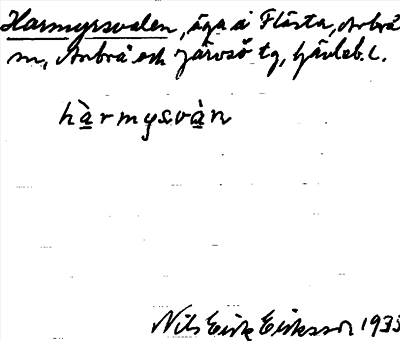 Harmyrsvalen, äga å Flästa, Arbrå
sn, Arbrå och Järvsö tg, Gävleb. l.
hàrmysvàn
Nils Erik Eriksson 1935